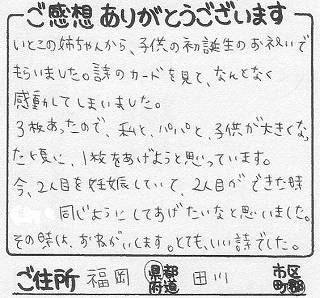 ご感想ありがとうございます
いとこの姉ちゃんから、子供の初誕生のお祝いで
もらいました。詩のカードを見て、なんとなく
感動してしまいました。
3枚あったので、私と、パパと、子供が大きくなっ
た頃に、1枚をあげようと思っています。
今、2人目を妊娠していて、2人目ができた時
同じようにしてあげたいなと思いました。
その時は、お願いします。とても、いい詩でした。
ご住所 福岡 都道府県 田川 市区町郡